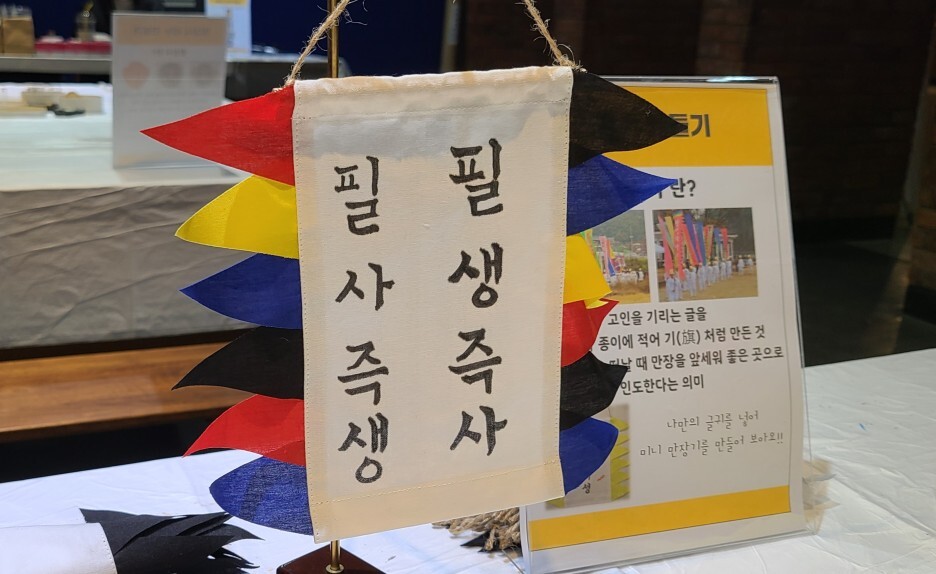 필사즉생
필생즉사
들기
란?
고인을 기리는 글을
종이에 적어 기(旗) 처럼 만든 것
떠날 때 만장을 앞세워 좋은 곳으로
인도한다는 의미
나만의 글귀를 넣어
미니 만장기를 만들어 보아요!!